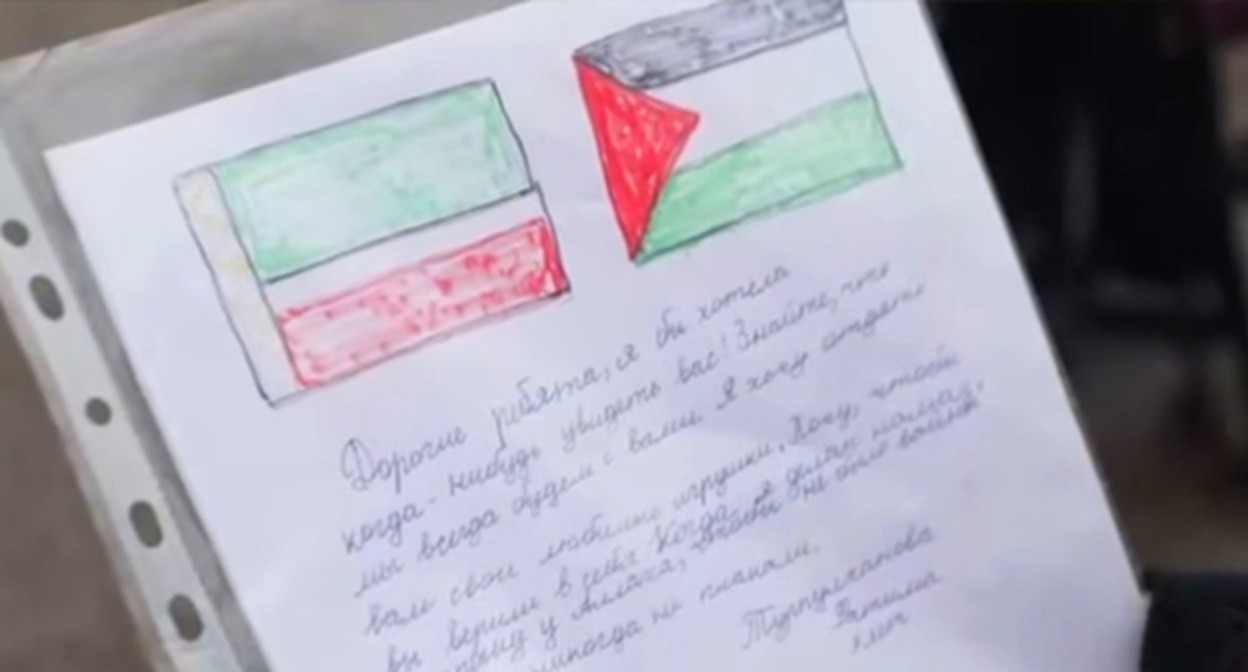 Дорогие ребята, я бы хотела
когда-нибудь увидеть вас! Знайте, что
мы всегда будем с вами. Я хочу отдать
вам свои любимые игрушки. Хочу, чтобы
вы верили в себя. Когда я делаю намаз,
прошу у Аллаха, чтобы не было войны,
никогда не плакали.
Турпулханова
Фатима